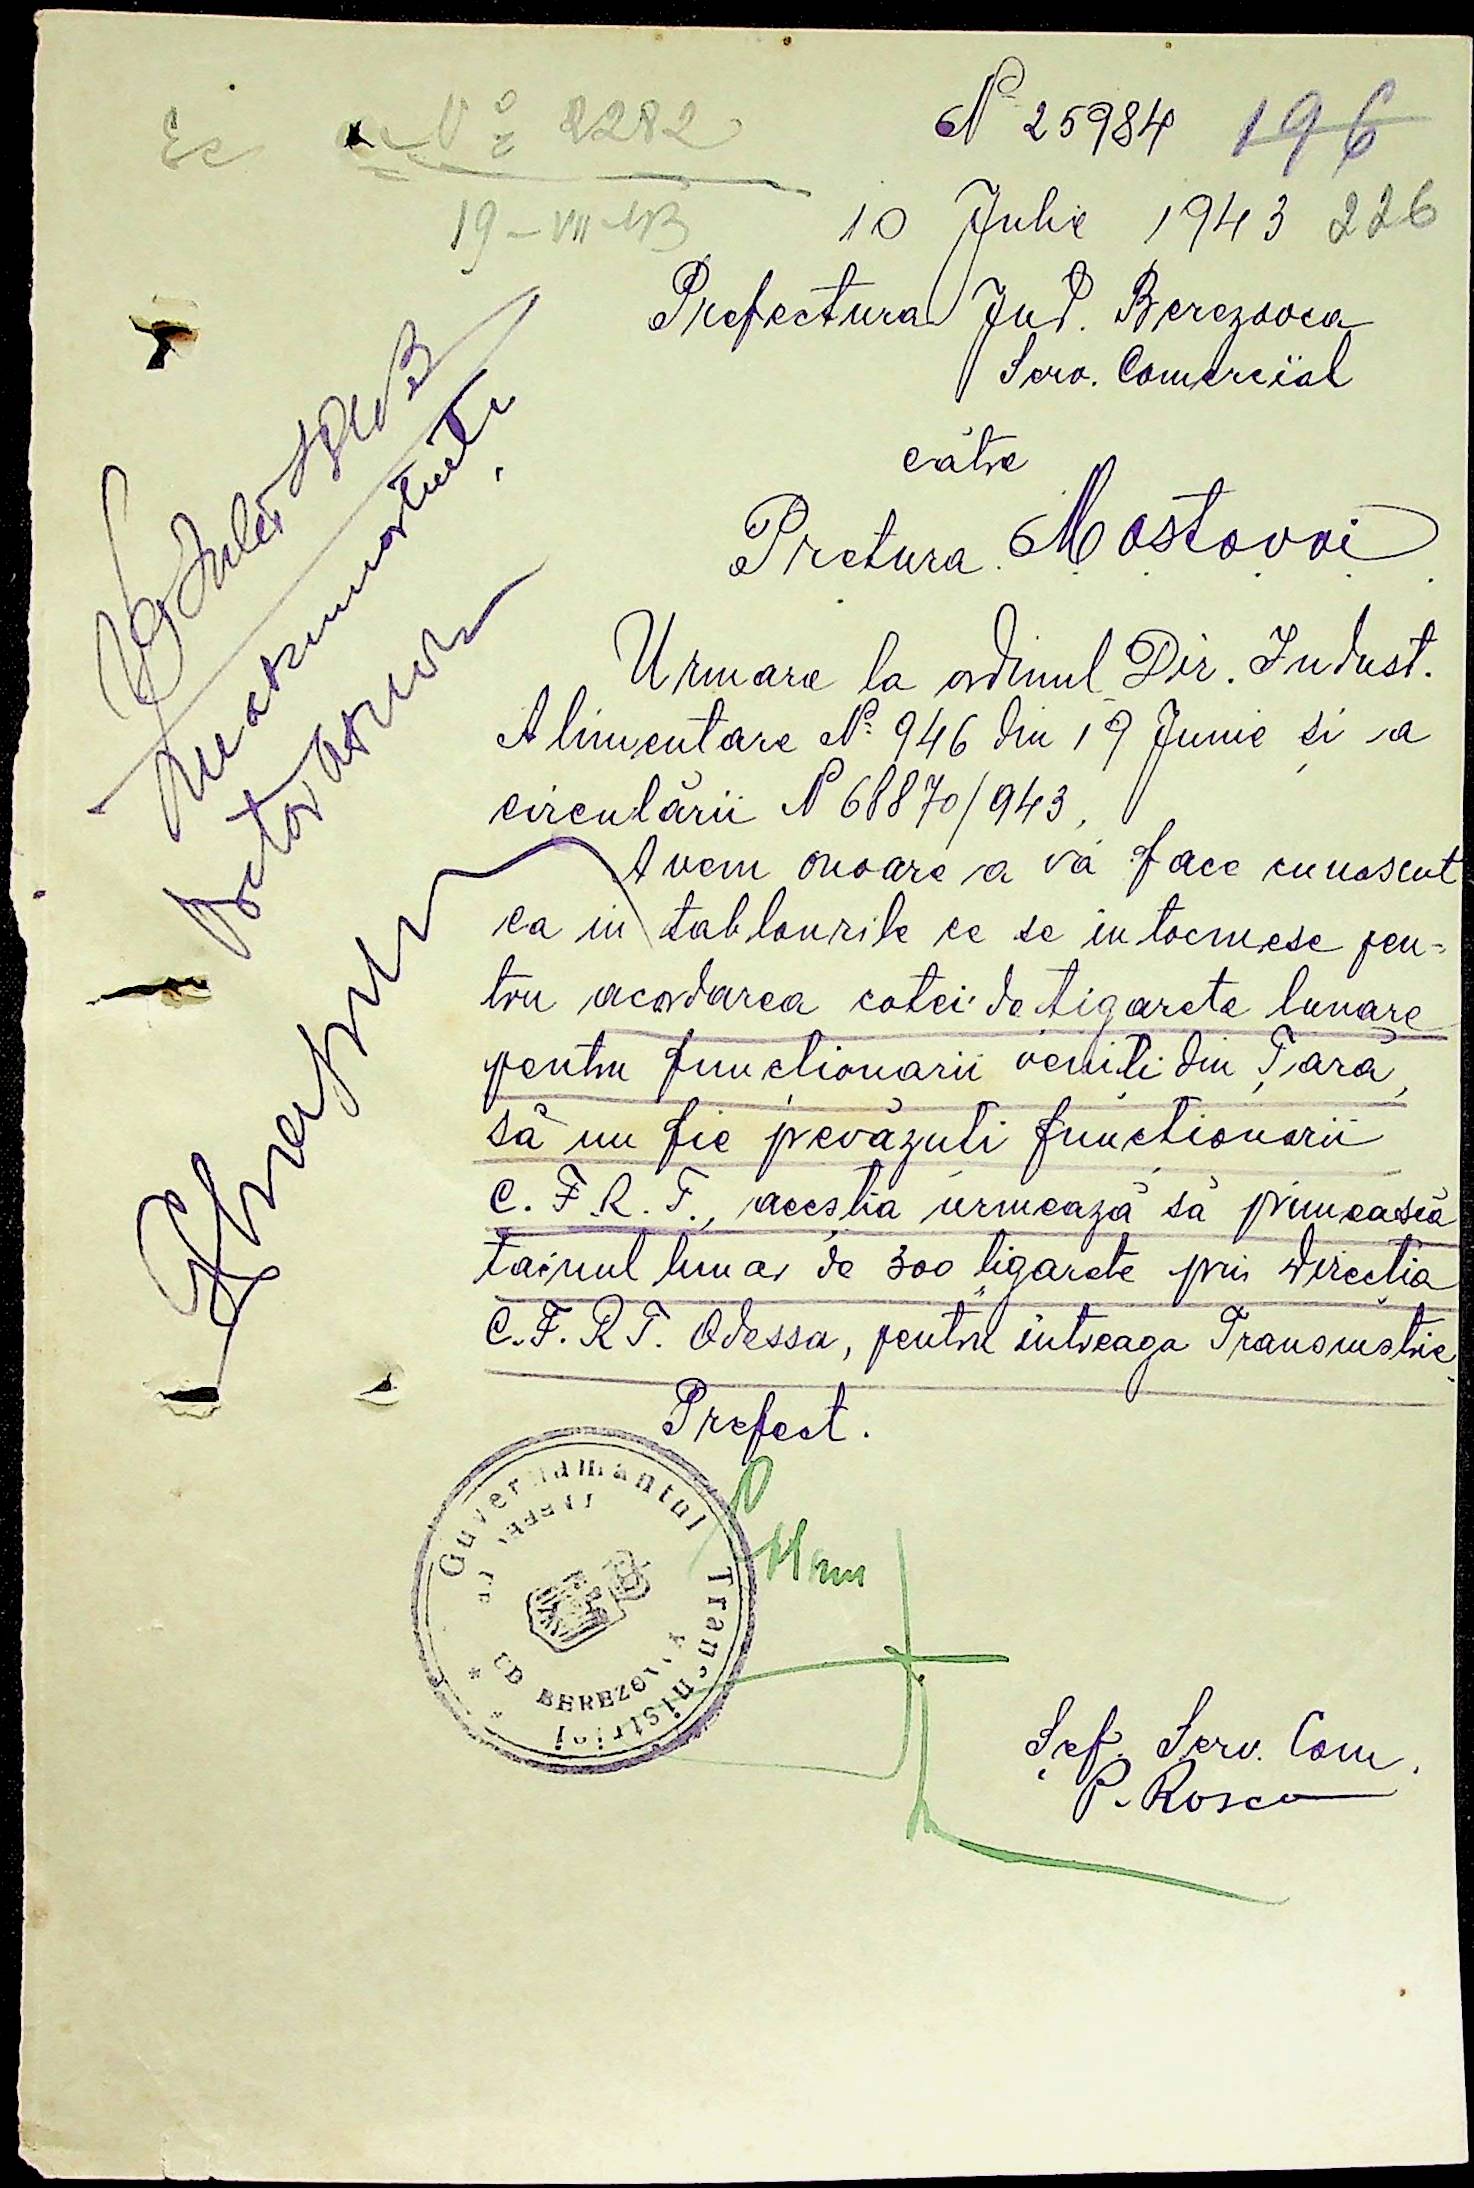 Nº 2282
19-VII-43
Nº 25984 196
10 Julie 1943 226
Prefectura Jud. Berezovca
Serv. Comercial
către
Pretura Mostovoi
Urmare la ordinul Dir. Indust.
Alimentare Nº 946 din 19 Junie și a
circulării Nº 68870/943,
Avem onoare a vă face cunoscut
ca in tablourile ce se intocmesc pen-
tru acordarea cotei de țigarete lunare
pentru funcționarii veniți din Țară,
să nu fie prevăzuti funcționarii
C.F.R.T., aceștia urmează să primească
tainul lunar de 300 țigarete prin Direcția
C.F.R.T. Odessa, pentru intreaga Transnistrie.
Prefect.
Guvernamântul Transnistriei
JUD BEREZOVCA
Șef. Serv. Com.
P. Rosca